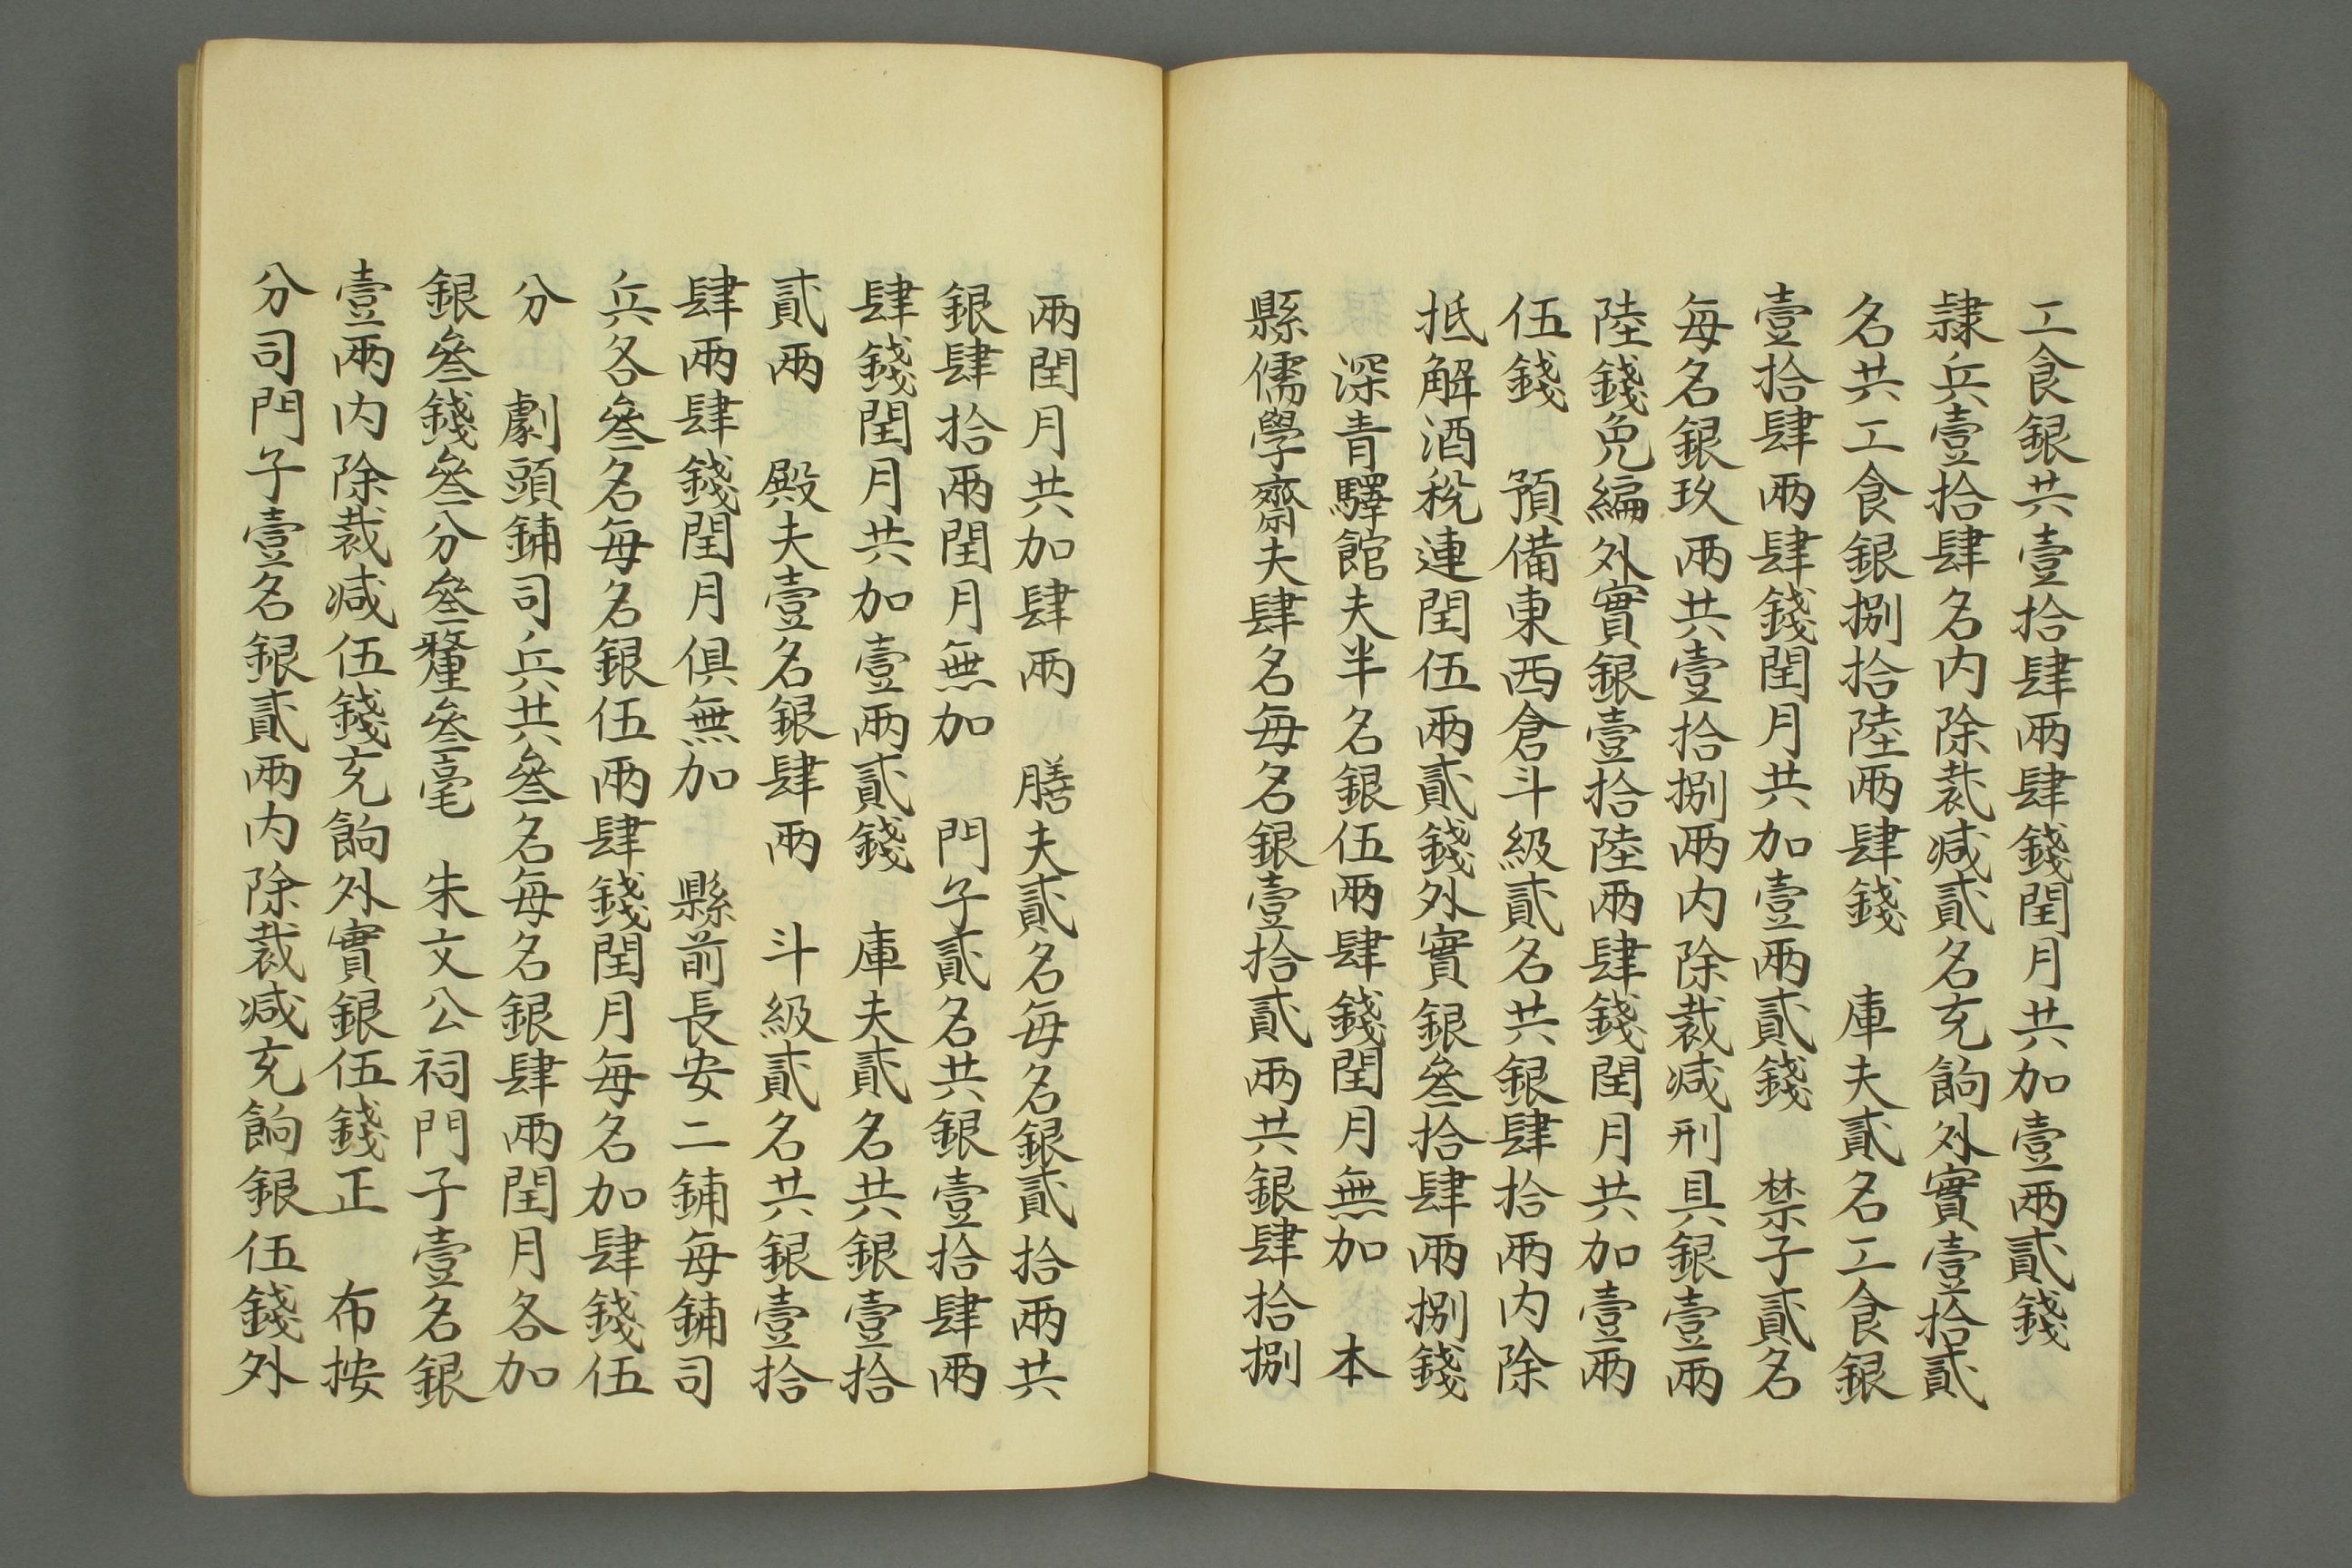 工食銀共壹拾肆兩肆錢閏月共加壹兩貳錢
隷兵壹拾肆名内除裁减貳名充餉外實壹拾貳
名共工食銀捌拾陸兩肆錢　庫夫貳名工食銀
壹拾肆兩肆錢閏月共加壹兩貳錢　禁子貳名
每名銀玖兩共壹拾捌兩内除裁减刑具銀壹兩
陸錢免編外實銀壹拾陸兩肆錢閏月共加壹兩
伍錢　預備東西倉斗級貳名共銀肆拾兩内除
抵解酒稅連閏伍兩貳錢外實銀叄拾肆兩捌錢
深青驛館夫半名銀伍兩肆錢閏月無加　本
縣儒學齋夫肆名每名銀壹拾貳兩共銀肆拾捌
兩閏月共加肆兩　膳夫貳名每名銀貳拾兩共
銀肆拾兩閏月無加　門子貳名共銀壹拾肆兩
肆錢閏月共加壹兩貳錢　庫夫貳名共銀壹拾
貳兩　殿夫壹名銀肆兩　斗級貳名共銀壹拾
肆兩肆錢閏月俱無加　縣前長安二鋪每鋪司
兵各叄名每名銀伍兩肆錢閏月每名加肆錢伍
分　劇頭鋪司兵共叄名每名銀肆兩閏月各加
銀叄錢叄分叄釐叄毫　朱文公祠門子壹名銀
壹兩内除裁减伍錢充餉外實銀伍錢正　布按
分司門子壹名銀貳兩内除裁减充餉銀伍錢外